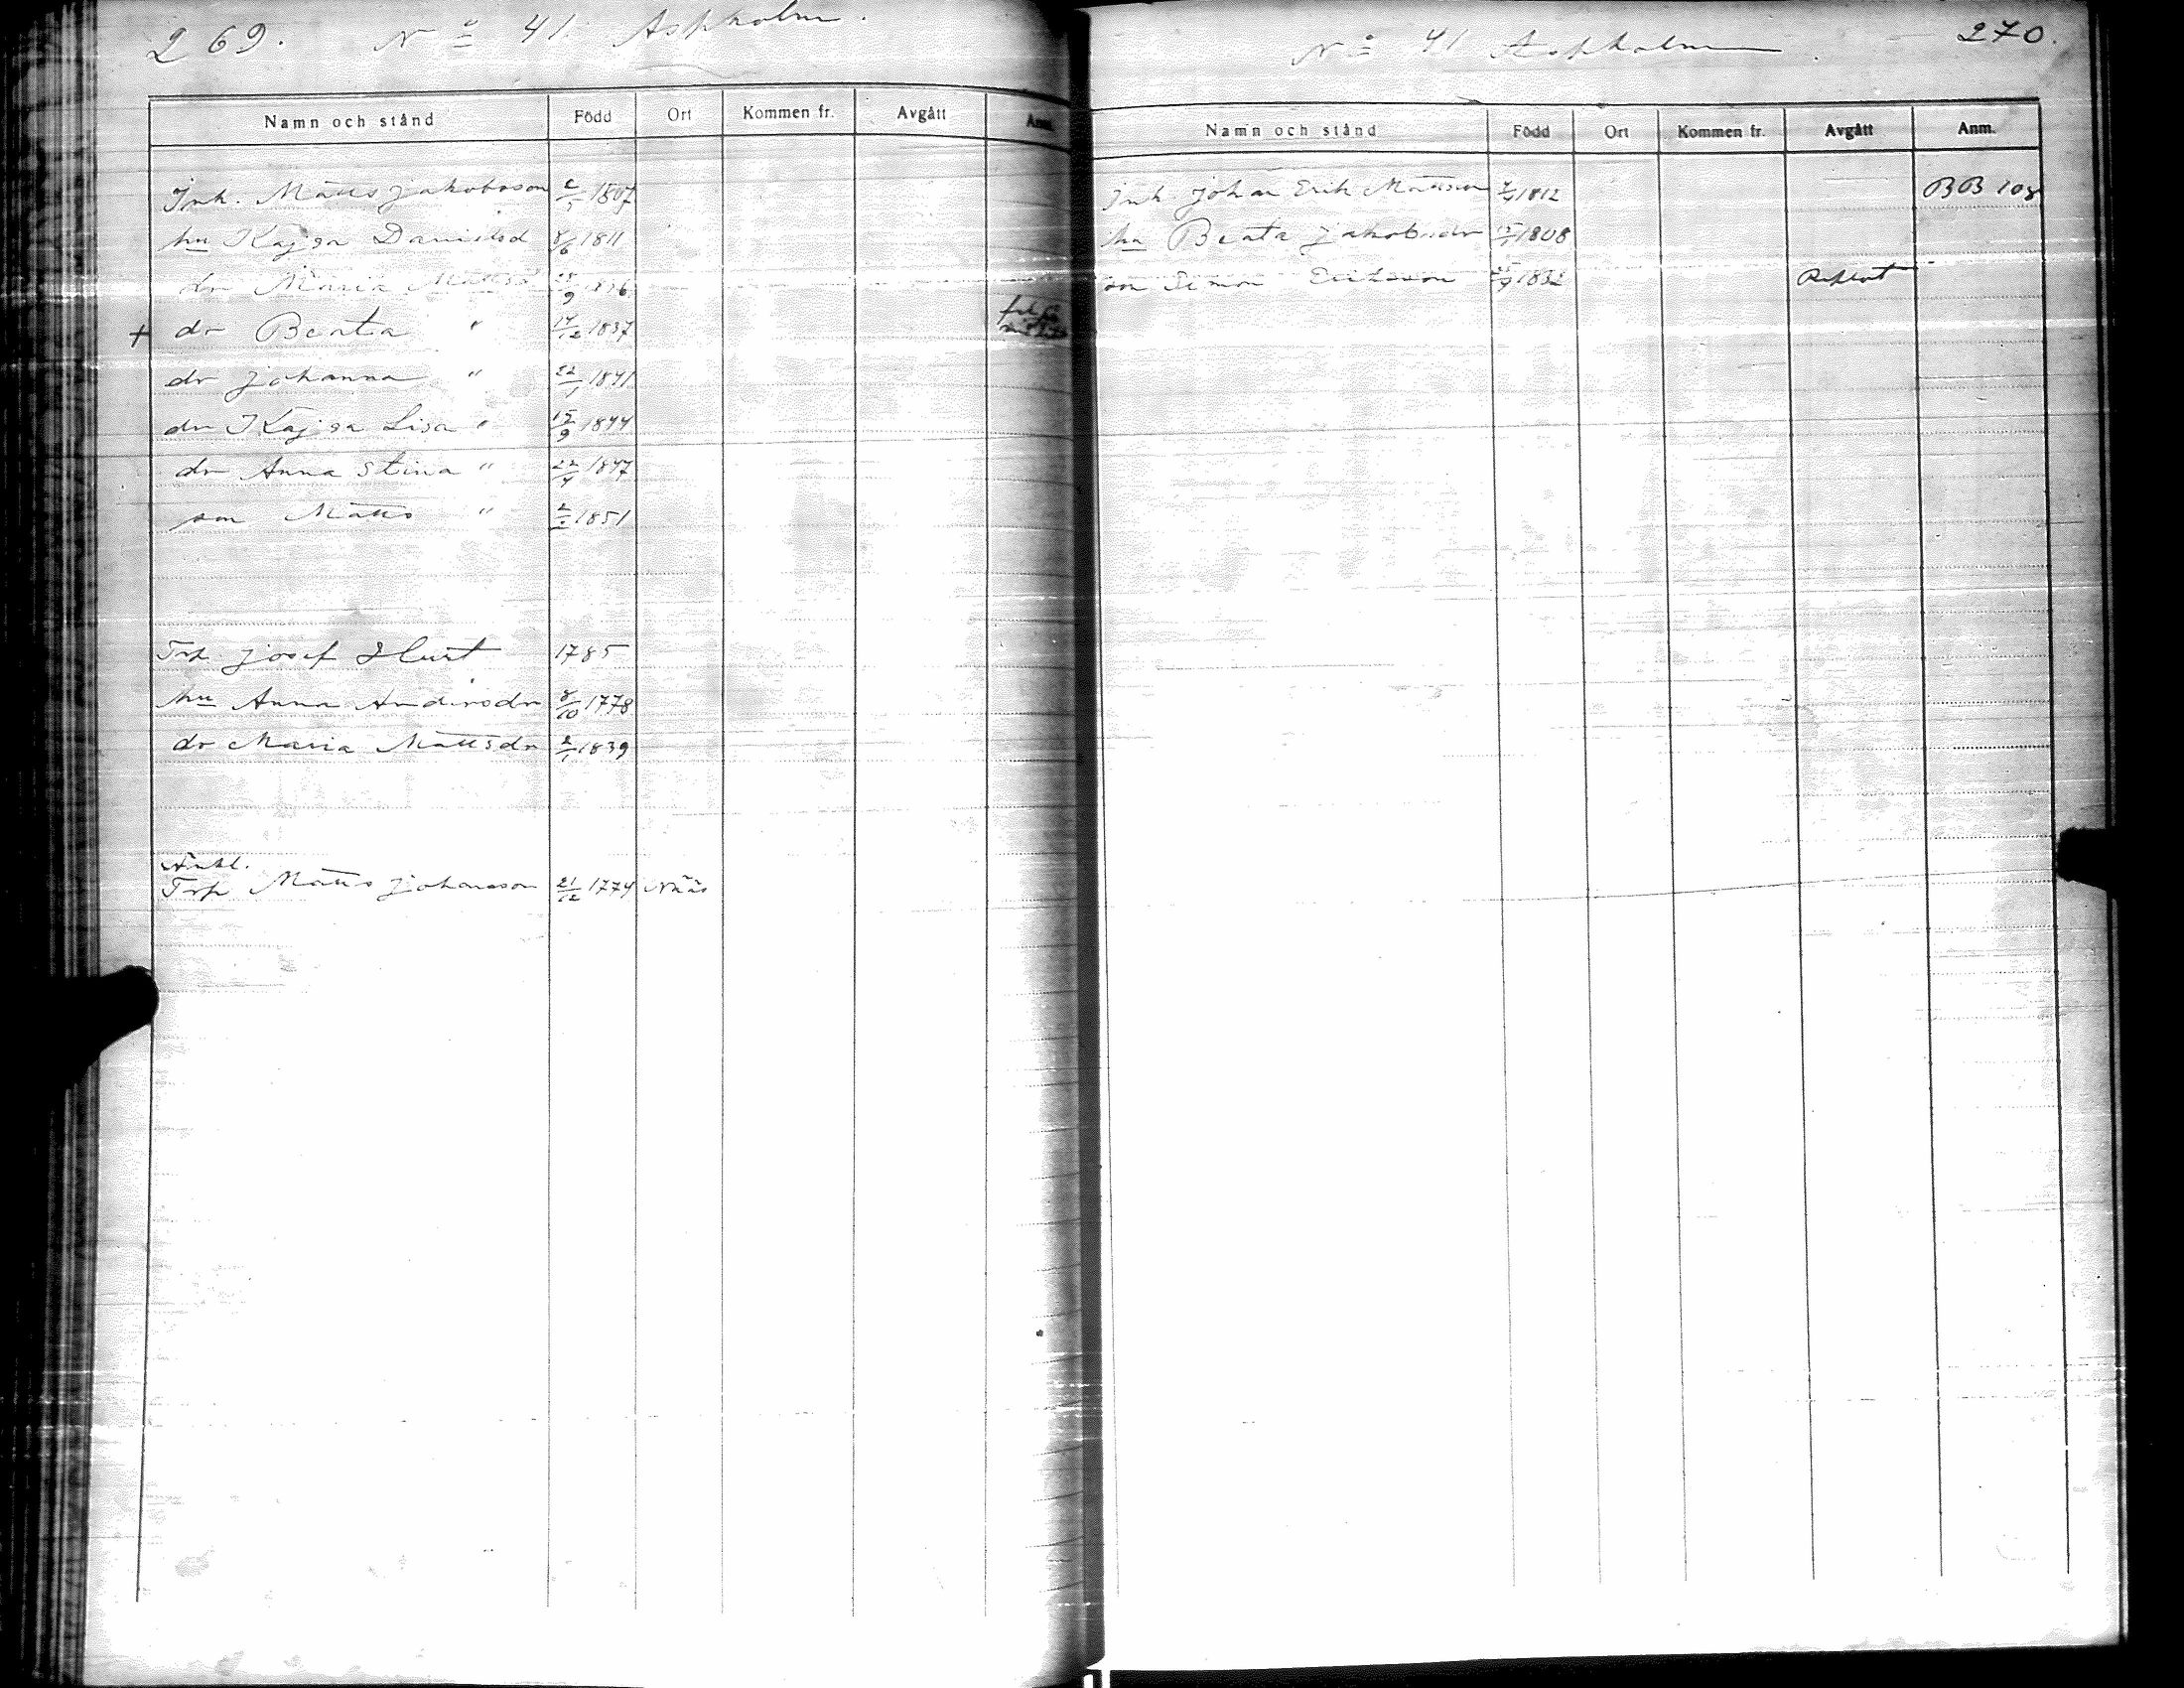 269. No 41 Aspholm.
Namn och stånd Född Ort Kommen fr. Avgått Anm.
Inh. Matts Jakobsson 2/1 1807
hu Kajsa Danielsd 8/6 1811
dr Maria Mattsd 1836
+ dr Beata " 14/12 1837
dr Johanna " 22/1 1841
dr Kajsa Lisa " 15/9 1844
dr Anna Stina " 22/4 1847
son Matts " 1851
Trp Josef Hurt 1785
hu Anna Andersdr 8/10 1778
dr Maria Mattsdr 2/1 1839
Änkl.
Trp Matts Johansson 21/12 1774 Nääs
No 41 Aspholm. 270.
Namn och stånd Född Ort Kommen fr. Avgått Anm.
Inh. Johan Erik Mattsson 1812 BB 108
hu Beata Jakobsdr 1808
son Simon Eriksson 1832